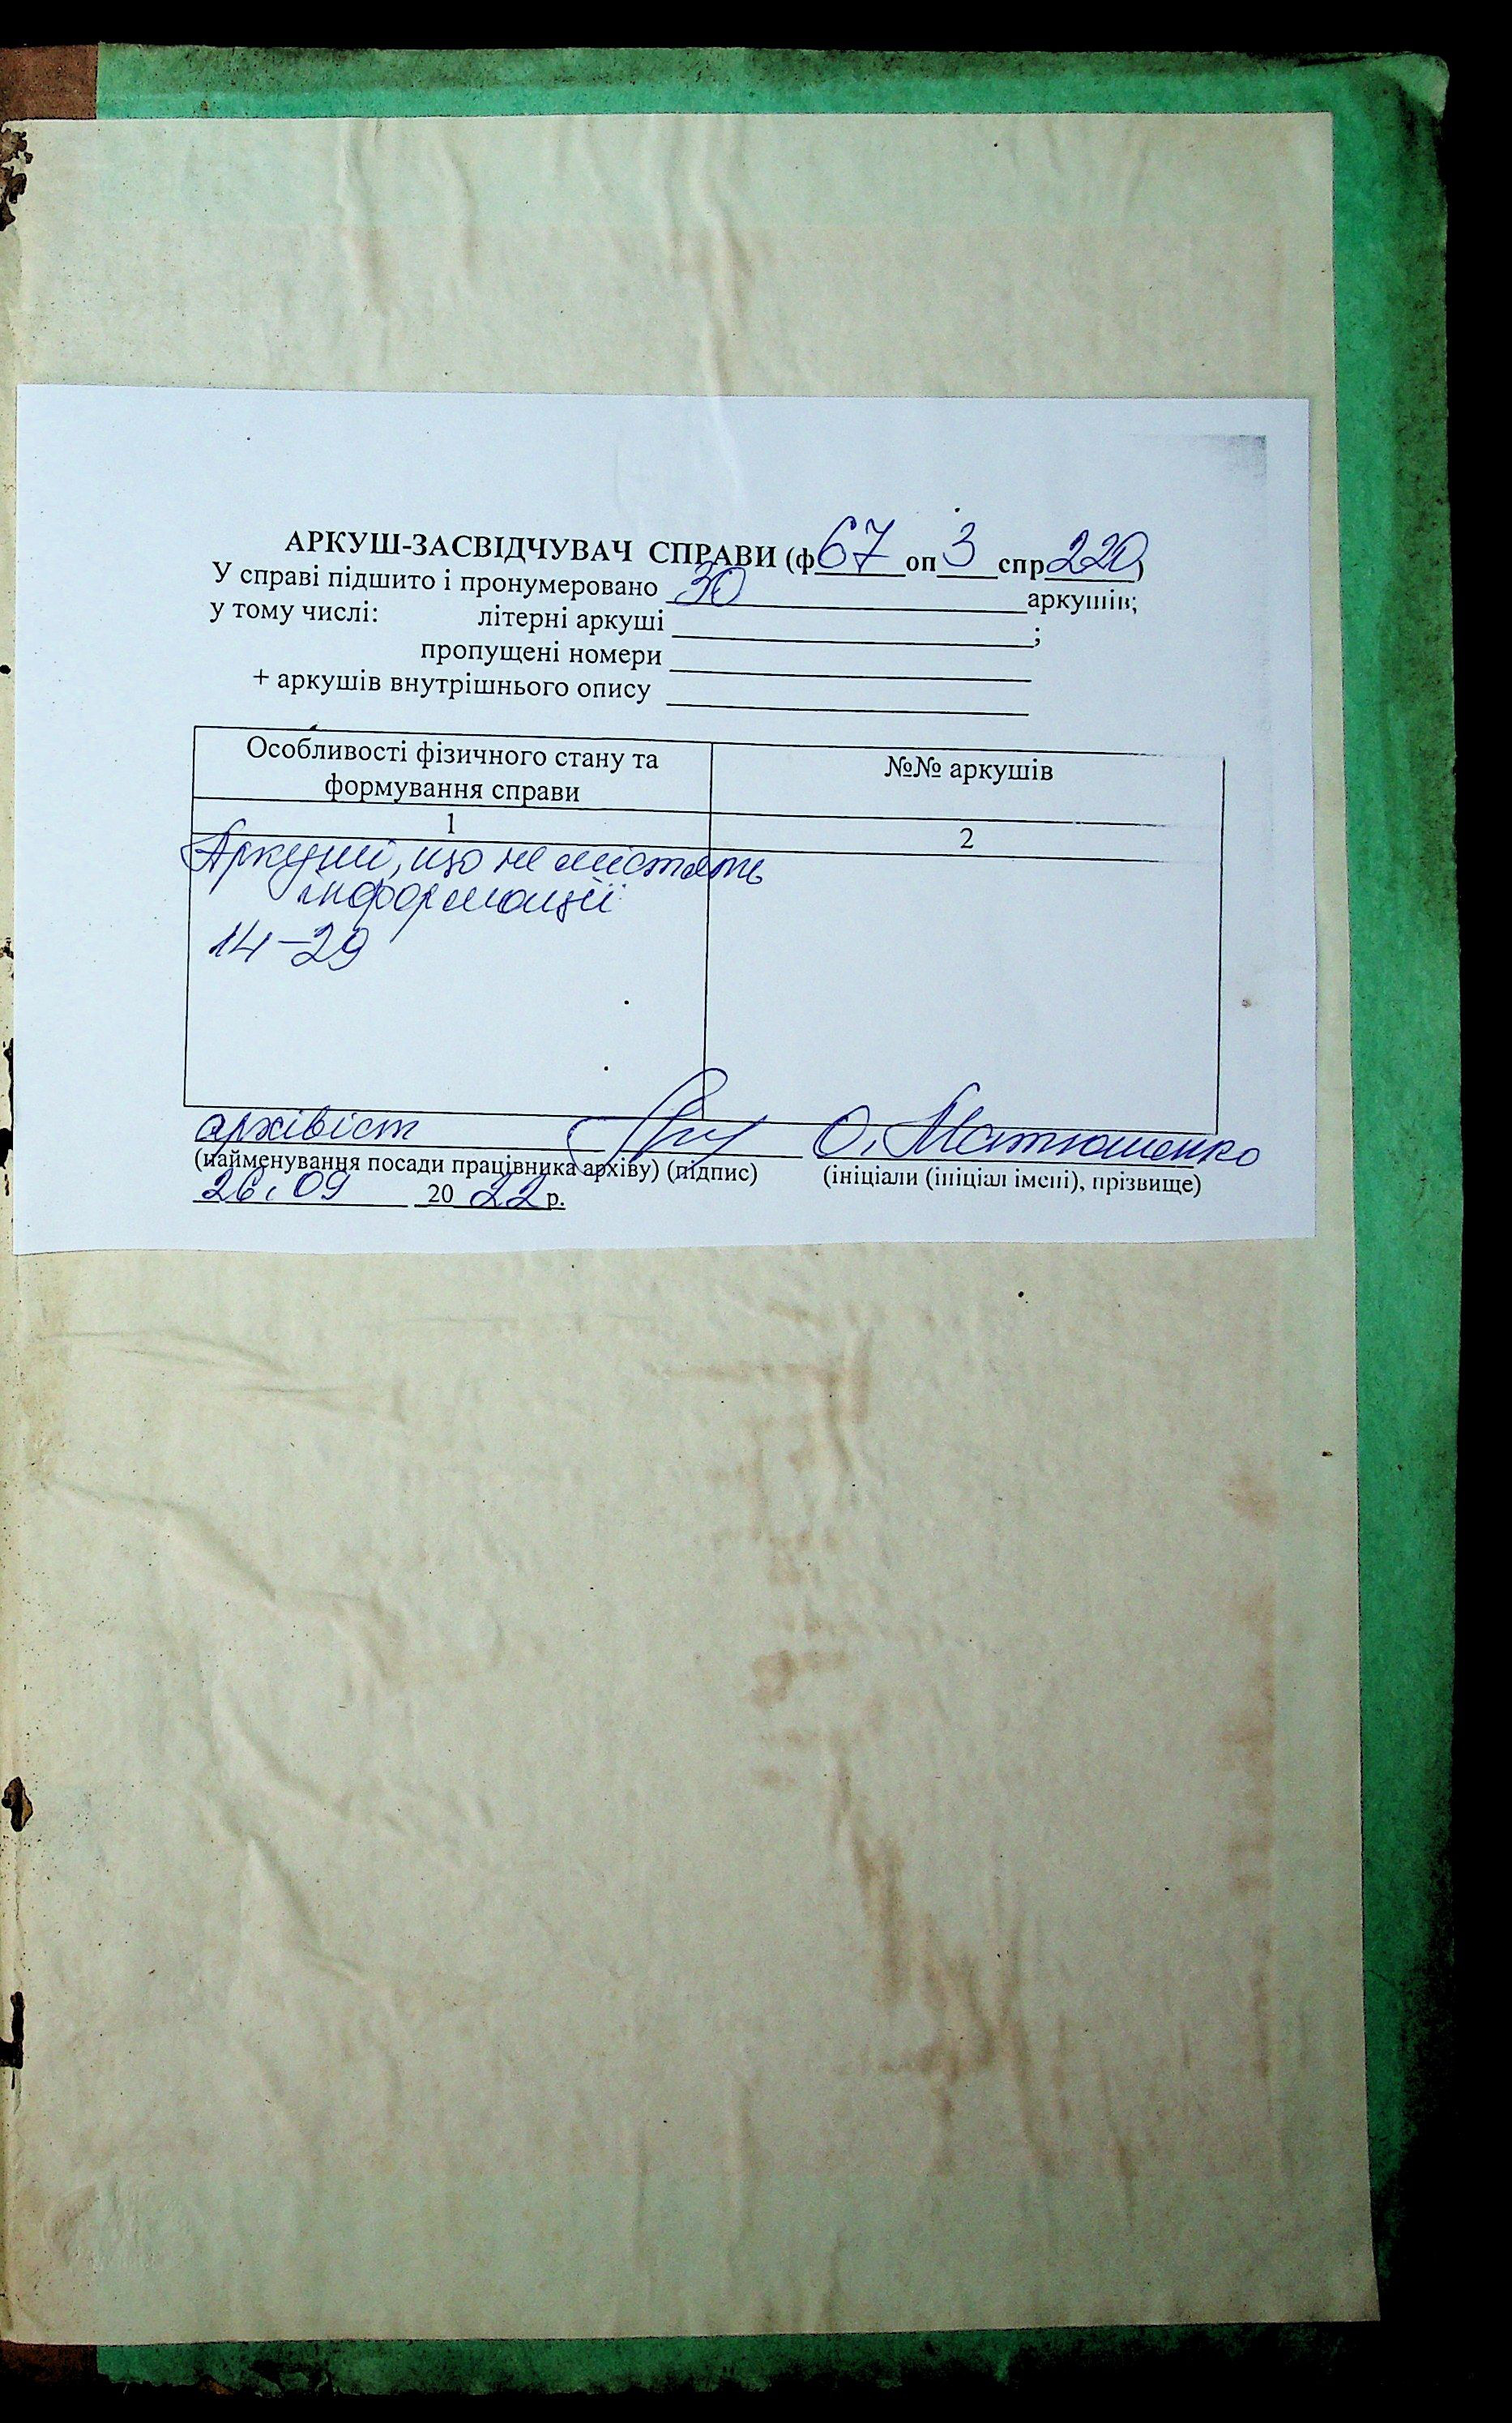 АРКУШ-ЗАСВІДЧУВАЧ СПРАВИ (ф 67 оп 3 спр 220)
У справі підшито і пронумеровано 30 аркушів;
у тому числі: літерні аркуші ;
пропущені номери
+ аркушів внутрішнього опису
Особливості фізичного стану та
формування справи
№№ аркушів
1
2
Аркуші, що не містять
інформації
14-29
архівіст О. Матюшенко
(найменування посади працівника архіву) (підпис) (ініціали (ініціал імені), прізвище)
26.09 2022 р.